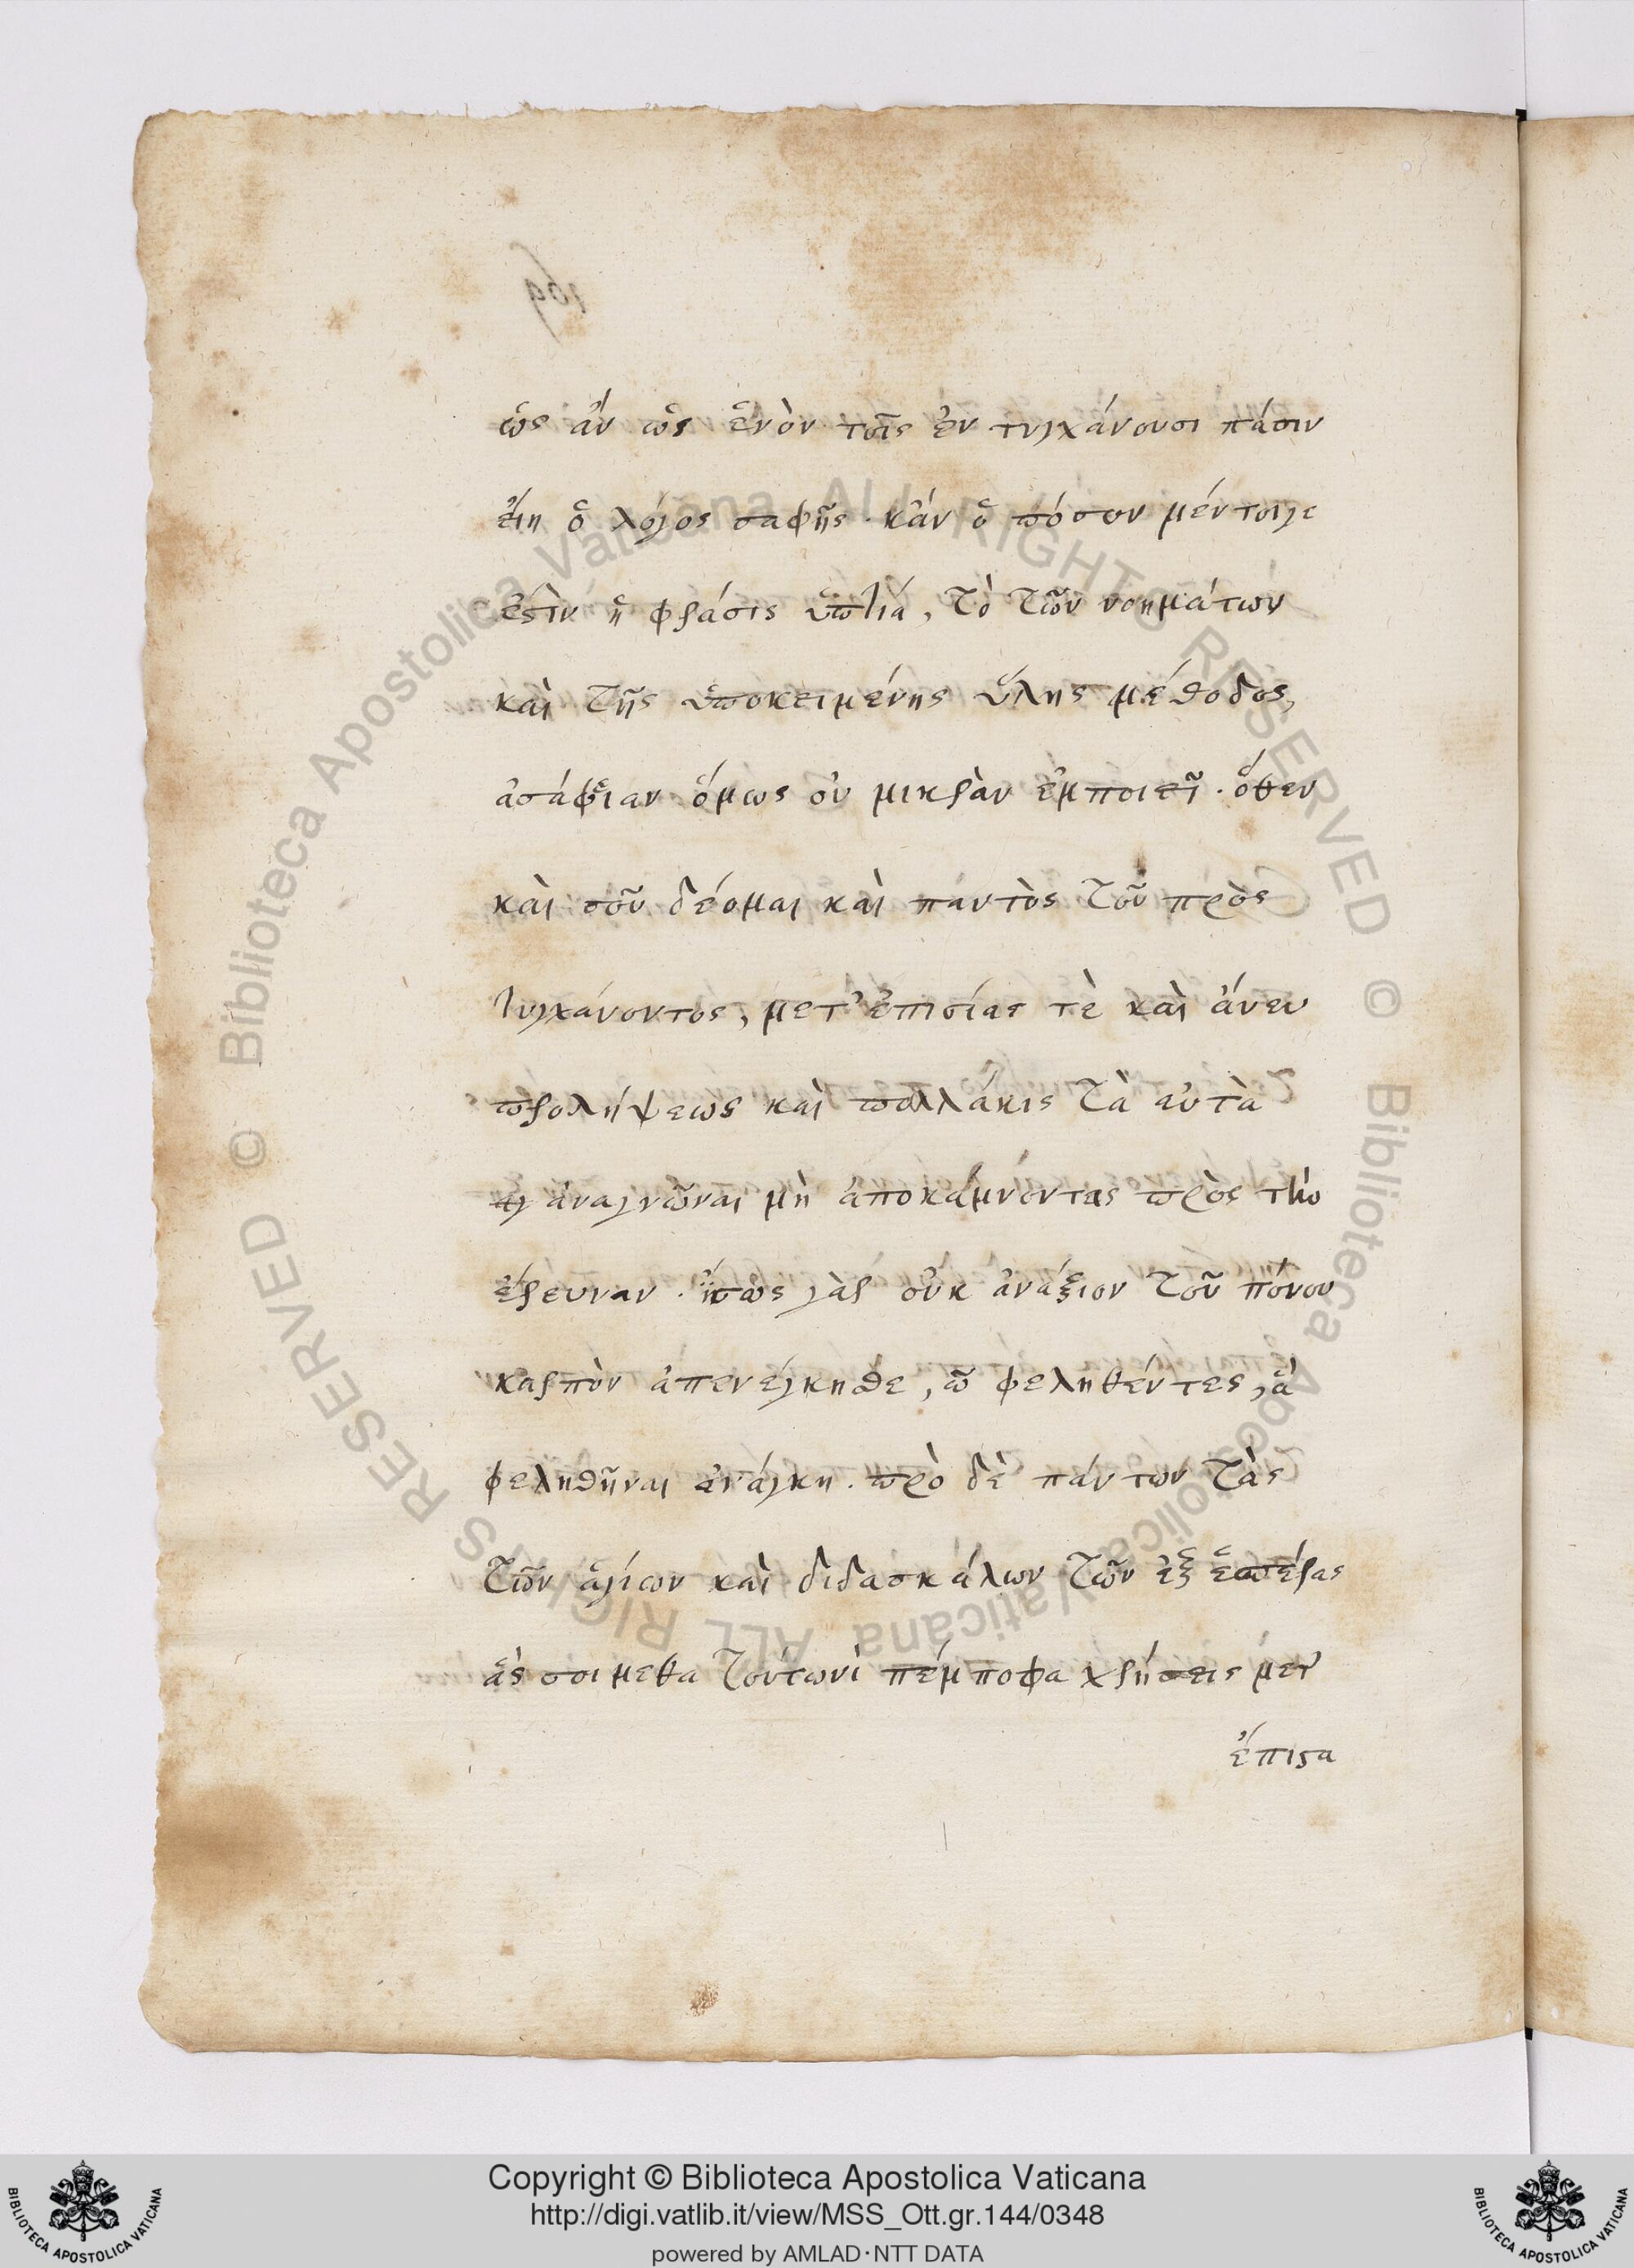 ὡς ἂν ὡς ἑνὸν τοῖς ἐν τυγχάνουσι πᾶσιν
εἴη ὁ λόγος σαφῆς. κἂν ὁ πόσον μέντοιγε
ἐστὶν ἡ φράσις ὑπτιά, τὸ τῶν νοημάτων
καὶ τῆς ὑποκειμένης ὕλης μέθοδος,
ἀσάφειαν ὅμως οὐ μικρὰν ἐμποιεῖ. ὅθεν
καὶ σοῦ δέομαι καὶ παντὸς τοῦ πρὸς
τυγχάνοντος, μετ' ἐπισίας τὲ καὶ ἄνευ
προλήψεως καὶ πολλάκις τὰ αὐτὰ
ἀναγνῶναι μὴ ἀποκάμνοντας πρὸς τὴν
ἔρευναν. γὰρ οὐκ ἀνάξιον τοῦ πόνου
καρπὸν ἀπενέγκησθε, ὦ φεληθέντες, ἃ
φεληθῆναι ἀνάγκη. πρὸ δὲ πάντων τὰς
τῶν ἁγίων καὶ διδασκάλων τῶν ἐξ ἑσπέρας
ἅς σοι μεθα τούτωνὶ πέμποφα χρήσεις μετ'
ἐπιστα
Copyright © Biblioteca Apostolica Vaticana
http://digi.vatlib.it/view/MSS_Ott.gr.144/0348
powered by AMLAD·NTT DATA
BIBLIOTECA APOSTOLICA VATICANA
BIBLIOTECA APOSTOLICA VATICANA
© Biblioteca Apostolica Vaticana ALL RIGHTS RESERVED © Biblioteca Apostolica Vaticana ALL RIGHTS RESERVED